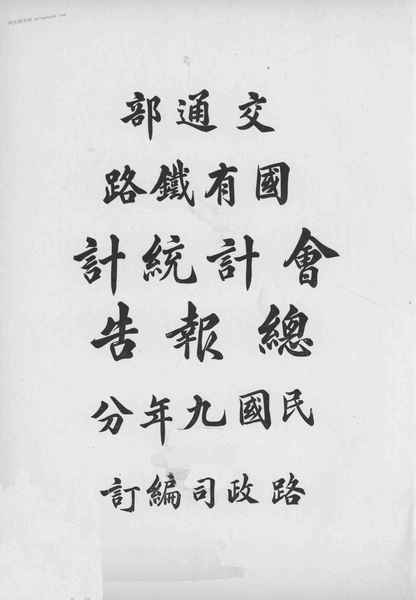 交通部
國有鐵路
會計統計
總報告
民國九年分
路政司編訂